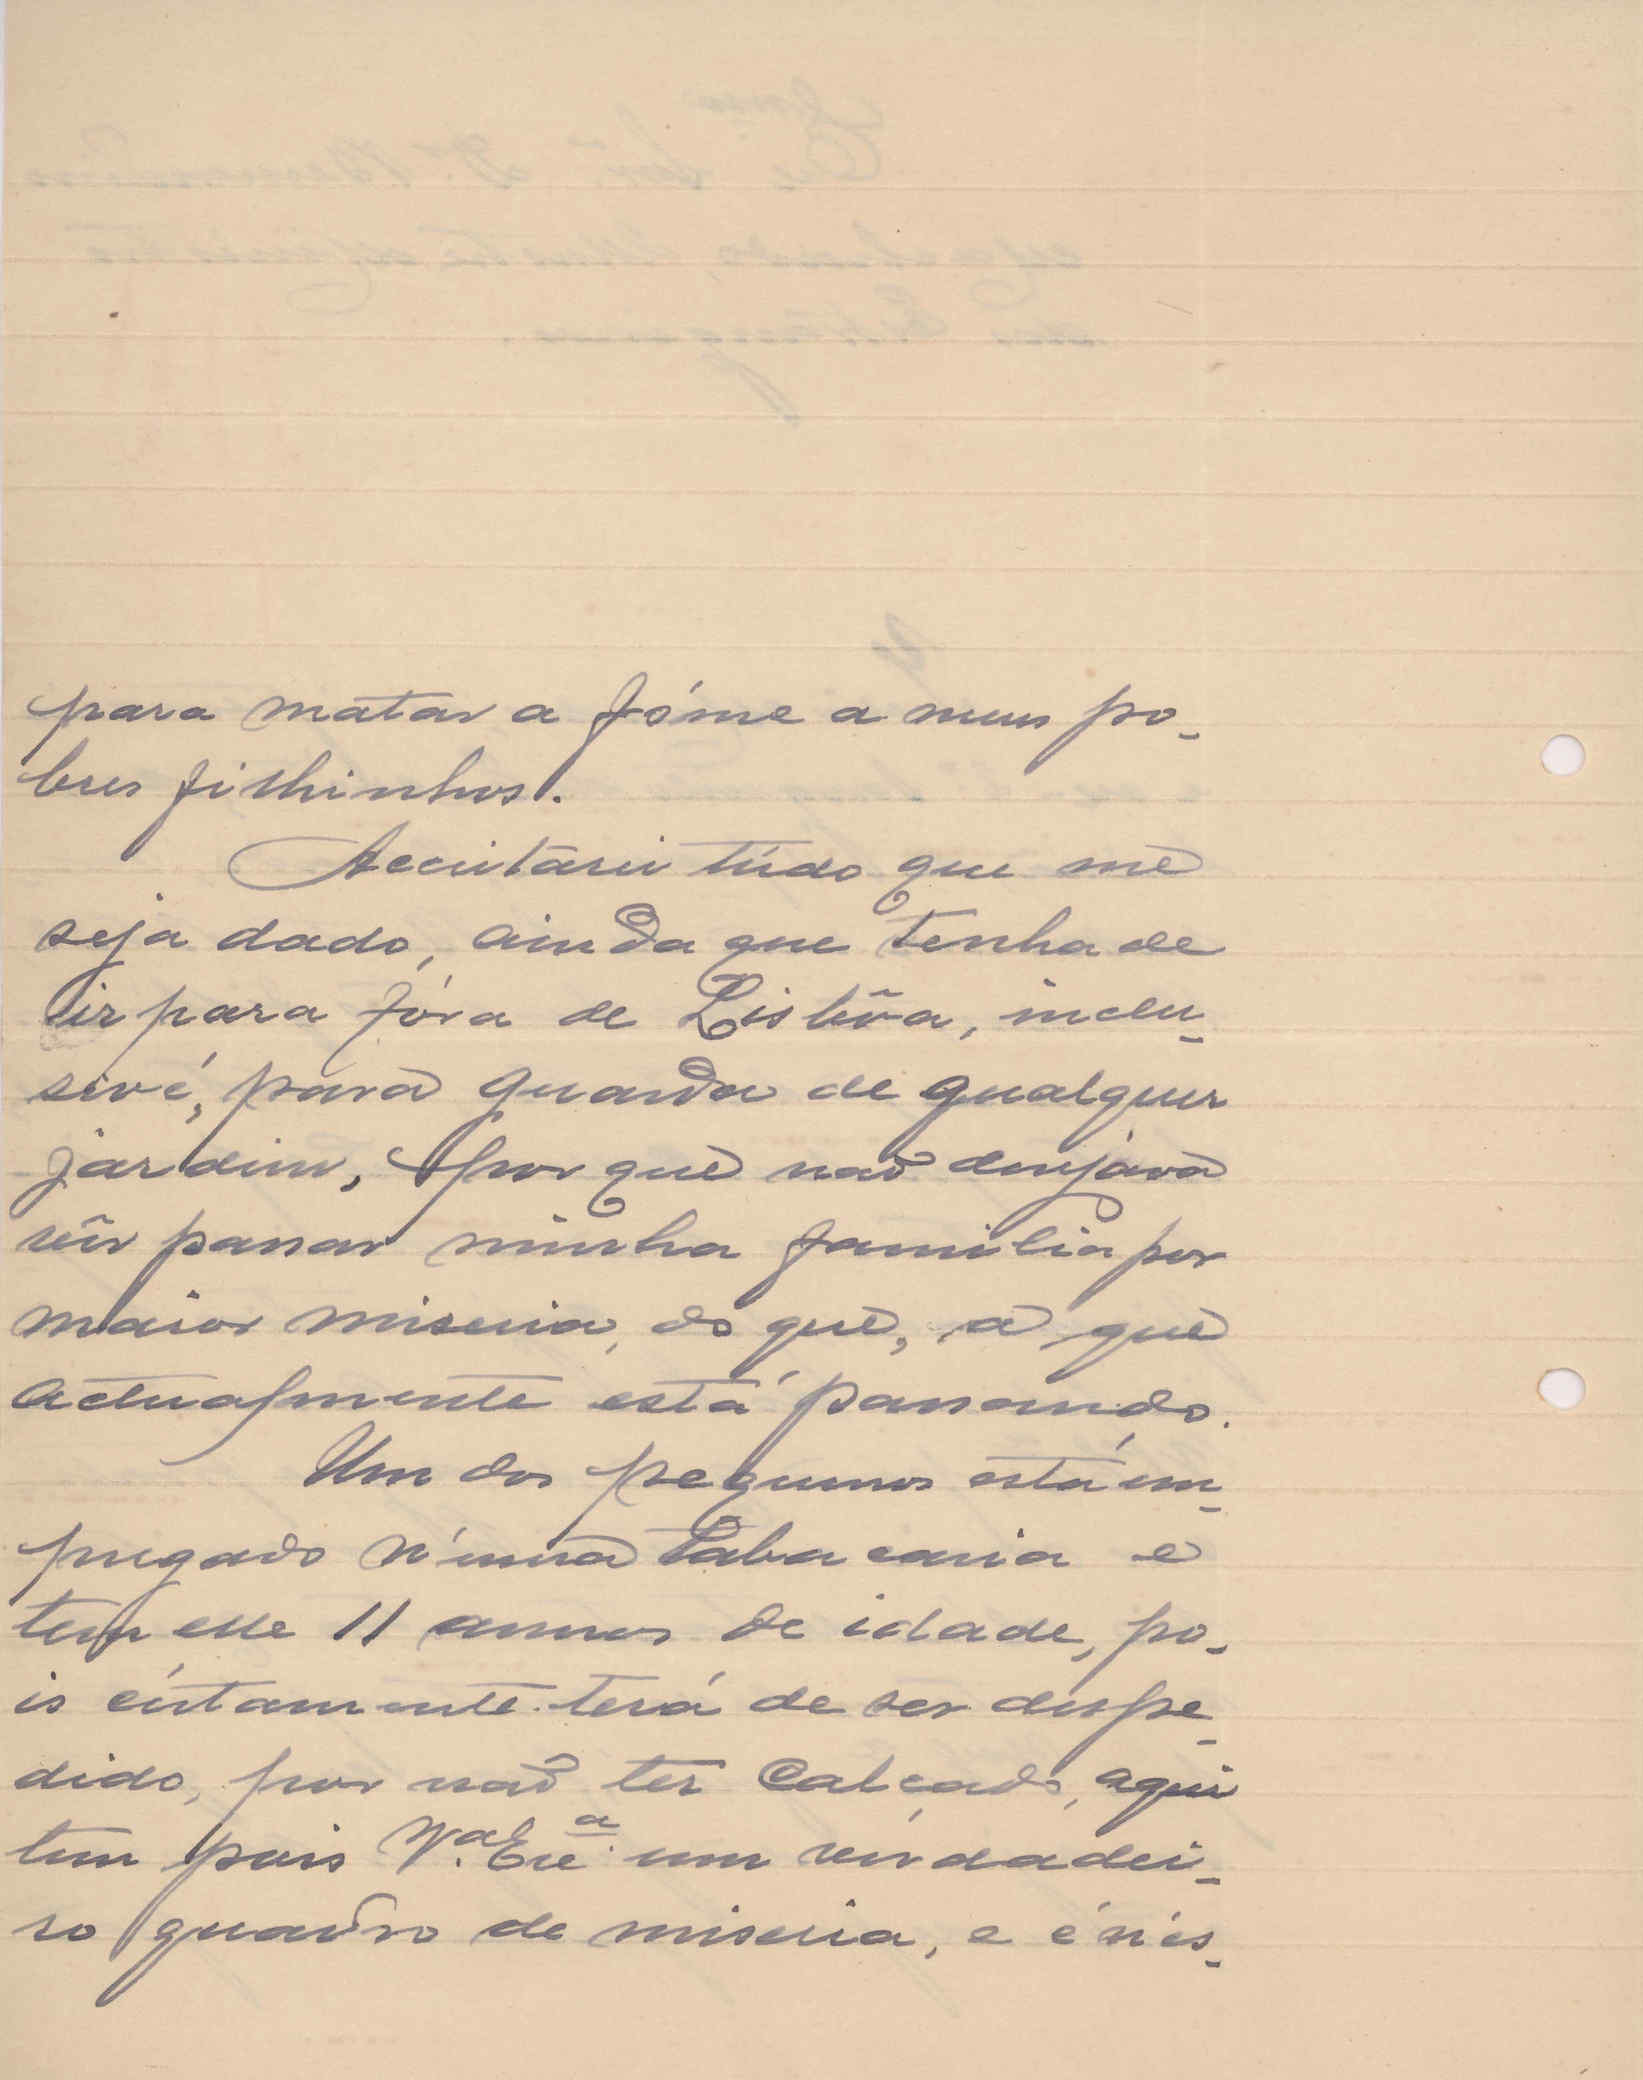 para matar a fóme a meus po-
bres filhinhos.
Acceitarei túdo que me
seja dado, ainda que tenha de
ir para fóra de Lisbôa, inclu-
sivé, para guarda de qualquer
jardim, por que não desejava
vêr passar minha familia por
maior miseria, do que, a que
actualmente está passando.
Um dos pequenos está em-
pregado n'uma Tabacaria e
tem elle 11 annos de idade, po-
is cértamente terá de ser despe-
dido, por não ter calçado, aqui
tem pois V.ª Exª um vérdadei-
ro quadro de miseria, e é n'és-